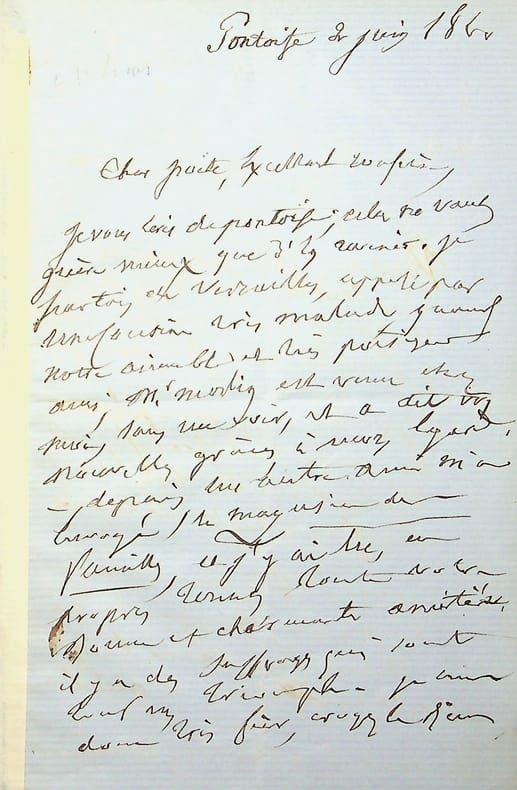 Pontoise 2 juin 18
Cher poète, Excellent confrère,
Je vous écris de pontoise; cela ne vaut
guère mieux que d'y revenir. je
partois de Versailles, appelé par
une cousine très malade quand
notre aimable et très
ami, Mr est venu chez
moi, sans me voir, et a dit vos
nouvelles grâces à mon égard,
– depuis un autre ami m'a
envoyé le magasin des
familles et j'y ai lu, en
propres termes toute votre
bonne et charmante amitié.
il y a des suffrages qui sont
tout un triomphe – je suis
donc très fier, croyez le bien